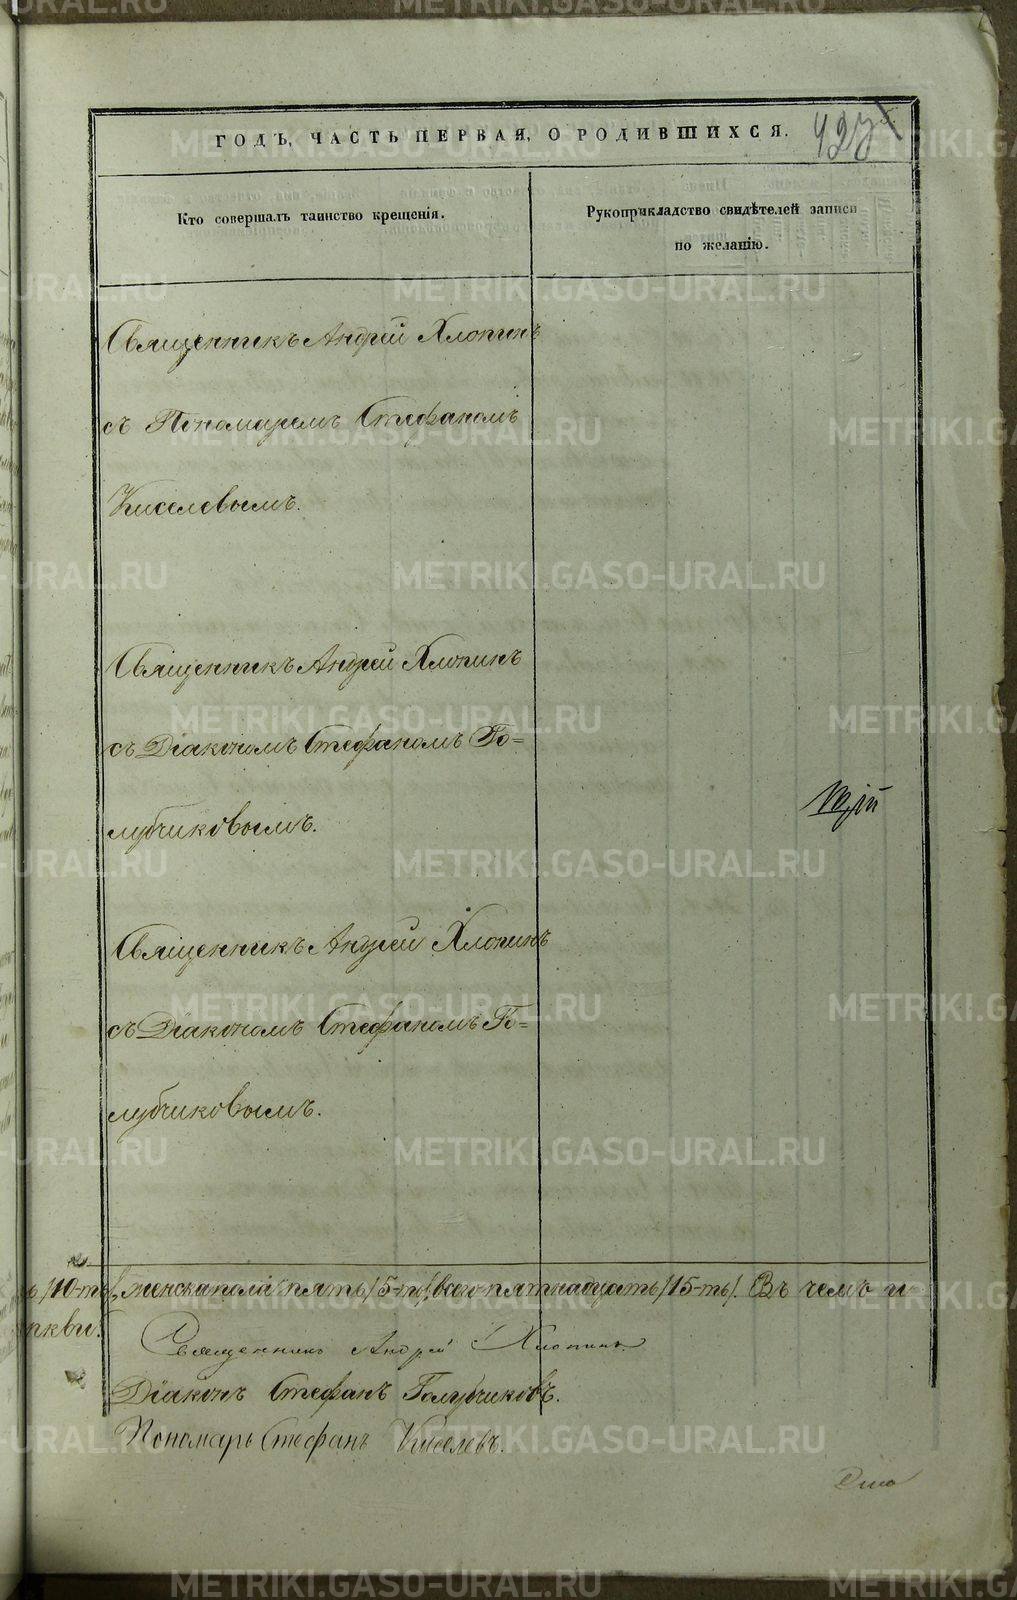 ГОДЪ, ЧАСТЬ ПЕРВАЯ, О РОДИВШИХСЯ.
Кто совершалъ таинство крещенія.
Рукоприкладство свидѣтелей записи
по желанію.
Священникъ Андрей Хлопинъ
съ Пономаремъ Стефаномъ
Киселевымъ.
Священникъ Андрей Хлопинъ
съ Діакономъ Стефаномъ Го=
лубчиковымъ.
Священникъ Андрей Хлопинъ
съ Діакономъ Стефаномъ Го=
лубчиковымъ.
ь /10-ть/, женска пола пять /5-ть/, всего пятнадцать /15-ть/. Въ чемъ и
ркви.
Священникъ Андрей Хлопинъ.
Діаконъ Стефанъ Голубчиковъ.
Пономарь Стефанъ Киселевъ.
METRIKI.GASO-URAL.RU